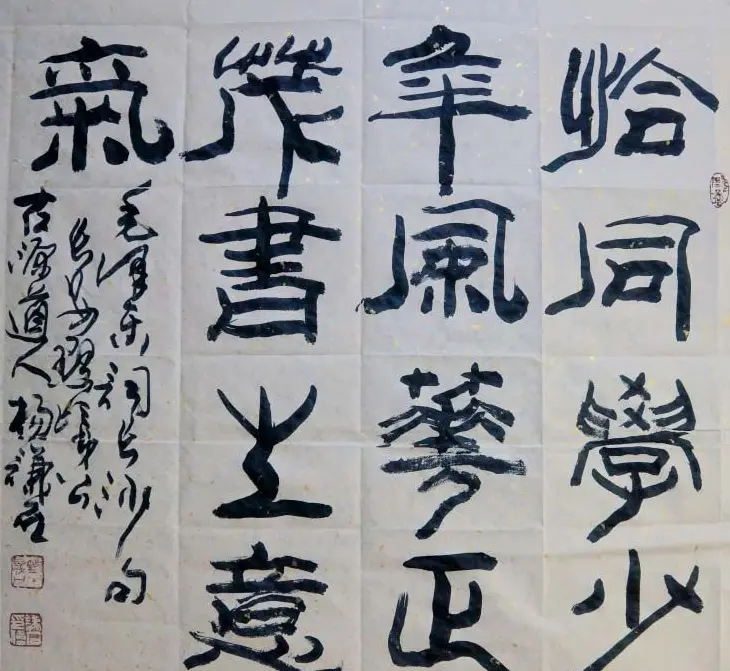 恰同學少
年風華正
茂書生意
氣
毛澤東詞長沙句
古源道人楊謙